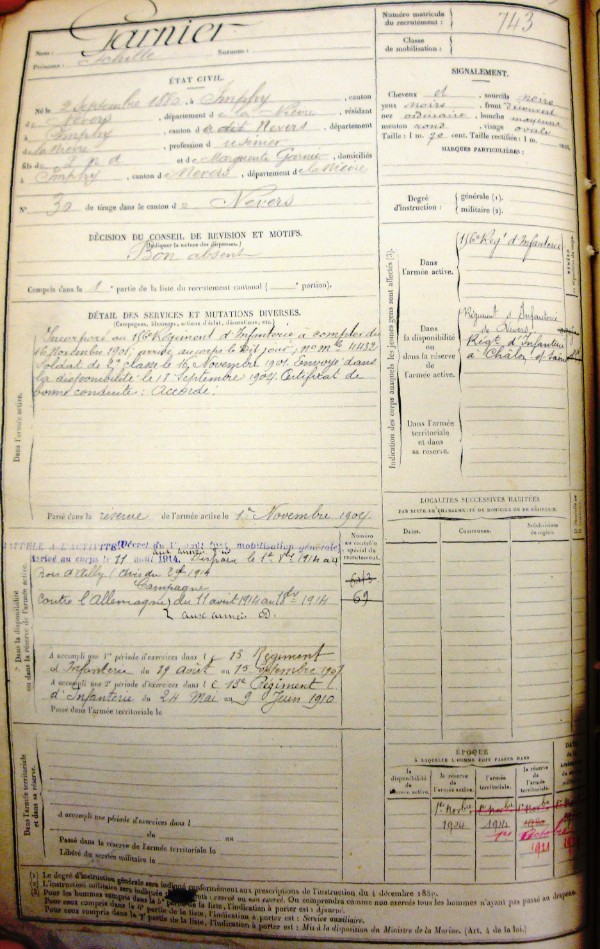 Garnier
Nom :
Prénoms : Achille Surnoms :
Numéro matricule
du recrutement : 743
Classe
de mobilisation :
ÉTAT CIVIL.
Né le 2 Septembre 188, à Imphy, canton
de Nevers, département de la Nièvre, résidant
à Imphy, canton de dit Nevers, département
de la Nièvre, profession d
fils de et de Marguerite Garnier, domiciliés
à Imphy, canton de Nevers, département de la Nièvre
N° 30 de tirage dans le canton d e Nevers
SIGNALEMENT.
Cheveux et, sourcils noirs
yeux noirs, front
nez ordinaire, bouche moyenne
menton rond, visage ovale
Taille : 1 m. 70 cent. Taille rectifiée : 1 m. cent.
MARQUES PARTICULIÈRES :
Degré
d'instruction :
générale (1).
militaire (2).
DÉCISION DU CONSEIL DE REVISION ET MOTIFS.
(Indiquer la nature des dispenses.)
Bon absent
Compris dans la 1e partie de la liste du recrutement cantonal ( portion).
DÉTAIL DES SERVICES ET MUTATIONS DIVERSES.
(Campagnes, blessures, actions d'éclat, décorations, etc.)
Dans l'armée active.
Incorporé au 156e Régiment d'Infanterie à compter du
16 Novembre 1901, arrivé au corps le dit jour, no mle 4432
Soldat de 2e classe le 16 Novembre 1901. Envoyé dans
la disponibilité le 18 Septembre 1904. Certificat de
bonne conduite : Accordé.
Passé dans la réserve de l'armée active le 1er Novembre 1904
Indication des corps auxquels les jeunes gens sont affectés (3).
Dans
l'armée active.
156e Régt d'Infanterie
Dans
la disponibilité
ou dans la réserve
de l'armée active.
Régiment d'Infanterie
de Nevers
Régt d'Infanterie
à
Dans l'armée
territoriale
et dans
sa réserve.
LOCALITÉS SUCCESSIVES HABITÉES
PAR SUITE DE CHANGEMENTS DE DOMICILE OU DE RÉSIDENCE.
Dates.
Communes.
Subdivisions
de région.
Dans la disponibilité
ou dans la réserve de l'armée active.
RAPPELÉ A L'ACTIVITÉ (Décret du 1er août 1914, mobilisation générale)
Arrivé au corps le 11 août 1914. Disparu le 1er 1914 au
Bois d'Ailly (Avis du 1914
Campagne
contre l'Allemagne du 11 août 1914 au 1914
aux armées
Numéro
au contrôle
spécial du
recrutement.
69
A accompli une 1re période d'exercices dans l e 13 Régiment
d'Infanterie du 19 août au 15 septembre 1907
A accompli une 2e période d'exercices dans l e 13e Régiment
d'Infanterie du 24 Mai au 9 Juin 1910
Passé dans l'armée territoriale le
Dans l'armée territoriale
et dans sa réserve.
A accompli une période d'exercices dans l
du au
Passé dans la réserve de l'armée territoriale le
Libéré du service militaire le
ÉPOQUE
A LAQUELLE L'HOMME DOIT PASSER DANS
la
disponibilité
de
l'armée active.
la réserve
de
l'armée active.
l'armée
territoriale.
la réserve
de
l'armée
territoriale.
1er Novbre
1904
1er Novbre
1914
1er Novbre
1921
(1) Le degré d'instruction générale sera indiqué conformément aux prescriptions de l'instruction du 4 décembre 1889.
(2) L'instruction militaire sera indiquée : exercé ou non exercé. On comprendra comme non exercés tous les hommes n'ayant pas passé au drapeau.
(3) Pour les hommes compris dans la 5e partie de la liste, l'indication à porter est : Ajourné.
Pour ceux compris dans la 6e partie de la liste, l'indication à porter est : Service auxiliaire.
Pour ceux compris dans la 7e partie de la liste, l'indication à porter est : Mis à la disposition du Ministre de la Marine. (Art. 4 de la loi.)